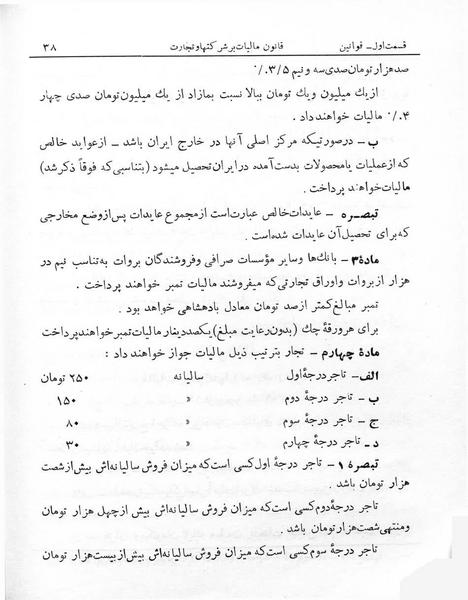 قسمت اول ـ قوانین قانون مالیات بر شرکتها و تجارت ۳۸
صد هزار تومان صدی سه و نیم ۳/۵٪
از یك میلیون و یك تومان ببالا نسبت بمازاد از یك میلیون تومان صدی چهار
۴٪ مالیات خواهند داد .
ب ـ در صورتیکه مرکز اصلی آنها در خارج ایران باشد ـ از عواید خالص
که از عملیات یا محصولات بدست آمده در ایران تحصیل میشود (بتناسبی که فوقاً ذکر شد)
مالیات خواهند پرداخت .
تبصره ـ عایدات خالص عبارت است از مجموع عایدات پس از وضع مخارجی
که برای تحصیل آن عایدات شده است .
مادهٔ ۳ ـ بانك‌ها و سایر مؤسسات صرافی و فروشندگان بروات به تناسب نیم در
هزار از بروات و اوراق تجارتی که میفروشند مالیات تمبر خواهند پرداخت .
تمبر مبالغ کمتر از صد تومان معادل یادهشاهی خواهد بود .
برای هر ورقهٔ چك (بدون رعایت مبلغ) یکصد دینار مالیات تمبر خواهند پرداخت
مادهٔ چهارم ـ تجار بترتیب ذیل مالیات جواز خواهند داد :
الف ـ تاجر درجهٔ اول سالیانه ۲۵۰ تومان
ب ـ تاجر درجهٔ دوم » ۱۵۰
ج ـ تاجر درجهٔ سوم » ۸۰
د ـ تاجر درجهٔ چهارم » ۳۰
تبصره ۱ ـ تاجر درجهٔ اول کسی است که میزان فروش سالیانه‌اش بیش از شصت
هزار تومان باشد .
تاجر درجهٔ دوم کسی است که میزان فروش سالیانه‌اش بیش از چهل هزار تومان
و منتهی شصت هزار تومان باشد .
تاجر درجهٔ سوم کسی است که میزان فروش سالیانه‌اش بیش از بیست هزار تومان